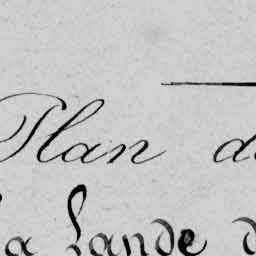 Plan d
la Lande d